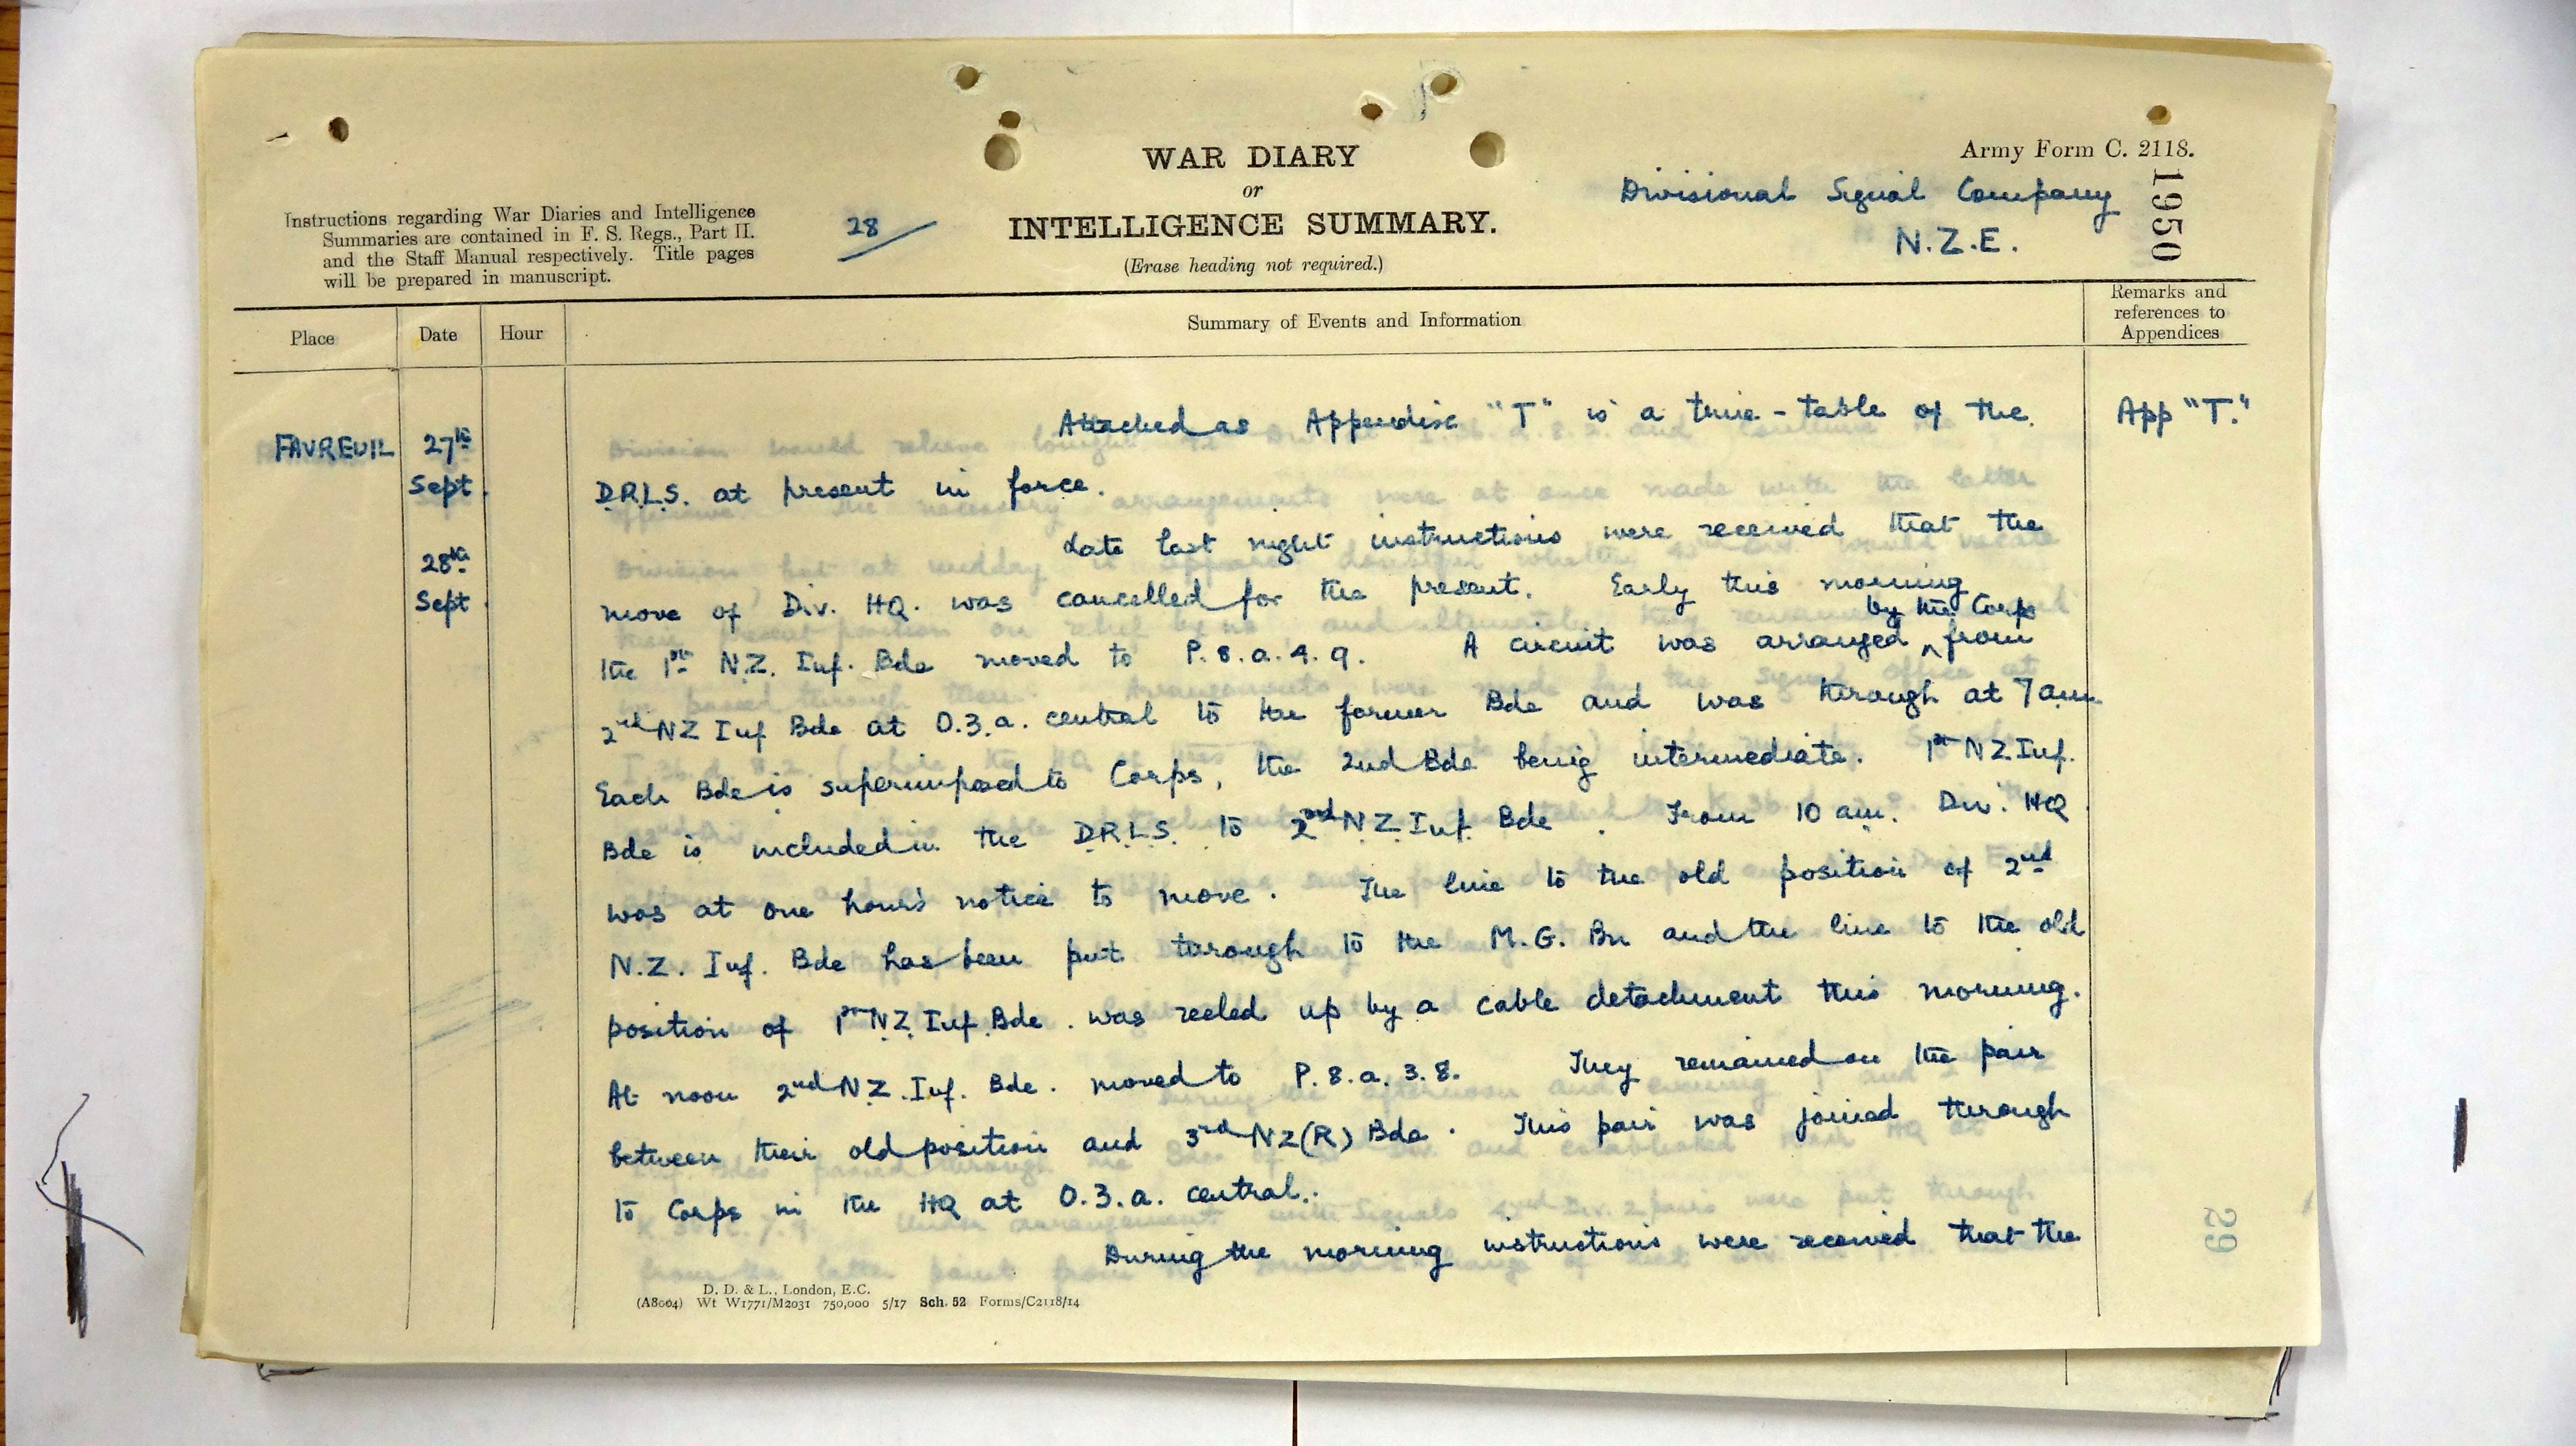 WAR DIARY
or
INTELLIGENCE SUMMARY.
(Erase heading not required.)
Army Form C. 2118.
Divisional Signal Company
N.Z.E.
1950
Instructions regarding War Diaries and Intelligence
Summaries are contained in F. S. Regs., Part II.
and the Staff Manual respectively. Title pages
will be prepared in manuscript.
28
Place
Date
Hour
Summary of Events and Information
Remarks and
references to
Appendices
FAVREUIL
27th
Sept.
28th
Sept
Attached as Appendix "T" is a time-table of the
App "T."
D.R.L.S. at present in force.
Late last night instructions were received that the
move of Div. HQ. was cancelled for the present. Early this morning
the 1st N.Z. Inf. Bde moved to P.8.a.4.9. A circuit was arranged ^ by the Corps from
2nd NZ Inf Bde at O.3.a. central to the former Bde and was through at 7am
Each Bde is superimposed to Corps, the 2nd Bde being intermediate. 1st NZ Inf.
Bde is included in the D.R.L.S. to 2nd N.Z. Inf. Bde. From 10 am. Div. HQ.
was at one hour's notice to move. The line to the old position of 2nd
N.Z. Inf. Bde has been put through to the M.G. Bn and the line to the old
position of 1st N.Z. Inf. Bde. was reeled up by a cable detachment this morning.
At noon 2nd N.Z. Inf. Bde. moved to P.8.a.3.8. They remained on the pair
between their old position and 3rd NZ(R) Bde. This pair was joined through
to Corps in the HQ at O.3.a. central.
During the morning instructions were received that the
D. D. & L., London, E.C.
(A8004) Wt W1771/M2031 750,000 5/17 Sch. 52 Forms/C2118/14
29